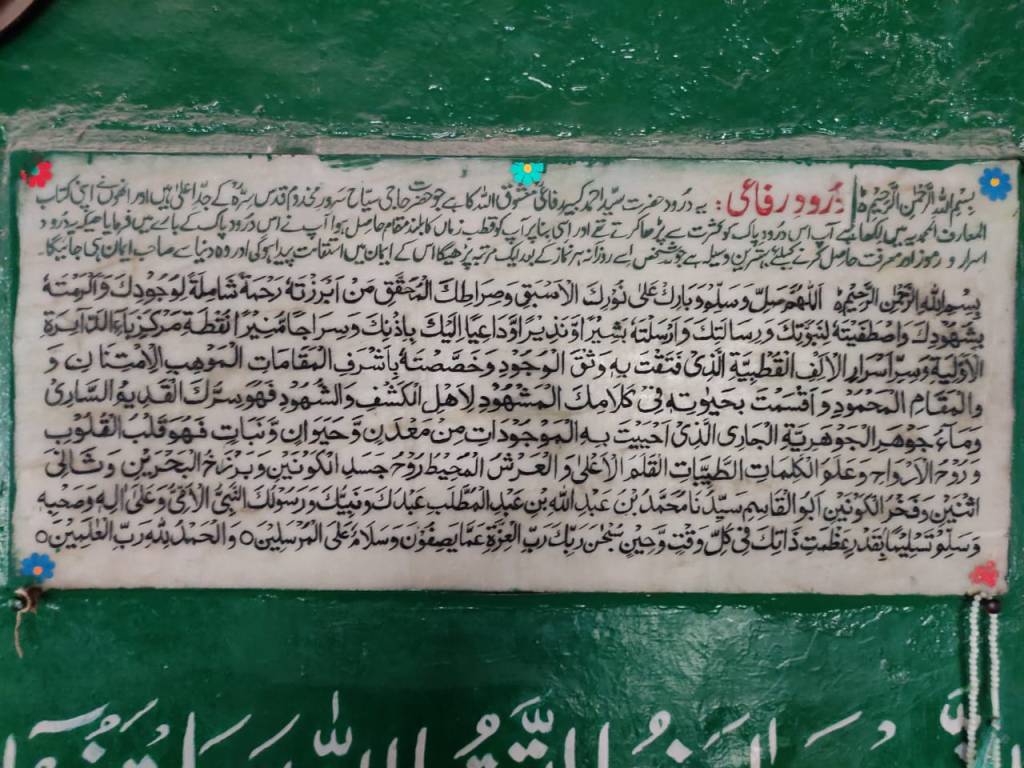 بِسْمِ اللّٰہِ الرَّحْمٰنِ الرَّحِیْمِ ط دُرودِ رفاعی : یہ دُرود حضرت سیّد احمد کبیر رفائی معشوق اللہ کا ہے جو حضرت حاجی سیاح سرور مخدوم قدس سِرّہٗ کے جدِّ اعلیٰ ہیں اور انھوں نے اپنی کتاب
المعارف المحمدیہ میں لکھا ہے آپ اس درود پاک کو کثرت سے پڑھا کرتے تھے اور اسی بنا پر آپ کو قطب زماں کا بلند مقام حاصل ہوا آپ نے اس درود پاک کے بارے میں فرمایا ھیکہ یہ درود
اسرار و رموز اور معرفت حاصل کرنے کیلئے بہترین وسیلہ ہے جو شخص اِسے روزانہ ہر نماز کے بعد ایک مرتبہ پڑھیگا اس کے ایمان میں استقامت پیدا ہوگی اور وہ دنیا سے صاحب ایمان ہی جائیگا۔
بِسْمِ اللهِ الرَّحْمٰنِ الرَّحِيْمِ ط اَللّٰهُمَّ صَلِّ وَسَلِّمْ وَبَارِكْ عَلٰى نُوْرِكَ الْاَسْبَقِ وَصِرَاطِكَ الْمُحَقَّقِ مَنْ اَبْرَزْتَهٗ رَحْمَةً شَامِلَةً لِوُجُوْدِكَ وَاَكْرَمْتَهٗ
بِشُهُوْدِكَ وَاصْطَفَيْتَهٗ لِنُبُوَّتِكَ وَرِسَالَتِكَ وَاَرْسَلْتَهٗ بَشِيْرًا وَّنَذِيْرًا وَّدَاعِيًا اِلَيْكَ بِاِذْنِكَ وَسِرَاجًا مُّنِيْرًا نُقْطَةِ مَرْكَزِ بَاءِ الدَّائِرَةِ
الْاَوَّلِيَّةِ وَسِرِّ اَسْرَارِ الْاَلِفِ الْقُطْبِيَّةِ الَّذِىْ فَتَقْتَ بِهٖ وَثْقَ الْوُجُوْدِ وَخَصَّصْتَهٗ بِاَشْرَفِ الْمَقَامَاتِ الْمَوْهِبِ الْاِمْتِنَانِ وَ
وَالْمَقَامِ الْمَحْمُوْدِ وَاَقْسَمْتَ بِحَيٰوتِهٖ فِىْ كَلَامِكَ الْمَشْهُوْدِ لِاَهْلِ الْكَشْفِ وَالشُّهُوْدِ فَهُوَ سِرُّكَ الْقَدِيْمُ السَّارِىْ
وَمَاءُ جَوْهَرِ الْجَوْهَرِيَّةِ الْجَارِى الَّذِىْ اَحْيَيْتَ بِهِ الْمَوْجُوْدَاتِ مِنْ مَعْدَنٍ وَّحَيَوَانٍ وَّنَبَاتٍ فَهُوَ قَلْبُ الْقُلُوْبِ
وَرُوْحُ الْاَرْوَاحِ وَعَلَمُ الْكَلِمَاتِ الطَّيِّبَاتِ الْقَلَمُ الْاَعْلٰى وَالْعَرْشُ الْمُحِيْطُ رُوْحُ جَسَدِ الْكَوْنَيْنِ وَبَرْزَخُ الْبَحْرَيْنِ وَثَانِىَ
اثْنَيْنِ وَفَخْرُ الْكَوْنَيْنِ اَبُو الْقَاسِمِ سَيِّدُنَا مُحَمَّدُ بْنُ عَبْدِ اللهِ بْنِ عَبْدِ الْمُطَّلِبِ عَبْدِكَ وَنَبِيِّكَ وَرَسُوْلِكَ النَّبِىِّ الْاُمِّىِّ وَعَلٰى اٰلِهٖ وَصَحْبِهٖ
وَسَلِّمْ تَسْلِيْمًا بِقَدْرِ عَظَمَتِ ذَاتِكَ فِىْ كُلِّ وَقْتٍ وَّحِيْنٍ سُبْحٰنَ رَبِّكَ رَبِّ الْعِزَّةِ عَمَّا يَصِفُوْنَ وَسَلَامٌ عَلَى الْمُرْسَلِيْنَ o وَالْحَمْدُ لِلّٰهِ رَبِّ الْعٰلَمِيْنَ o